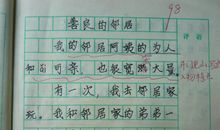 98
善良的邻居
评语
我的邻居阿姨的为人
和百可亲，也很宽宏大量。
有一次，我去邻居家
玩。我和邻居家的弟弟一